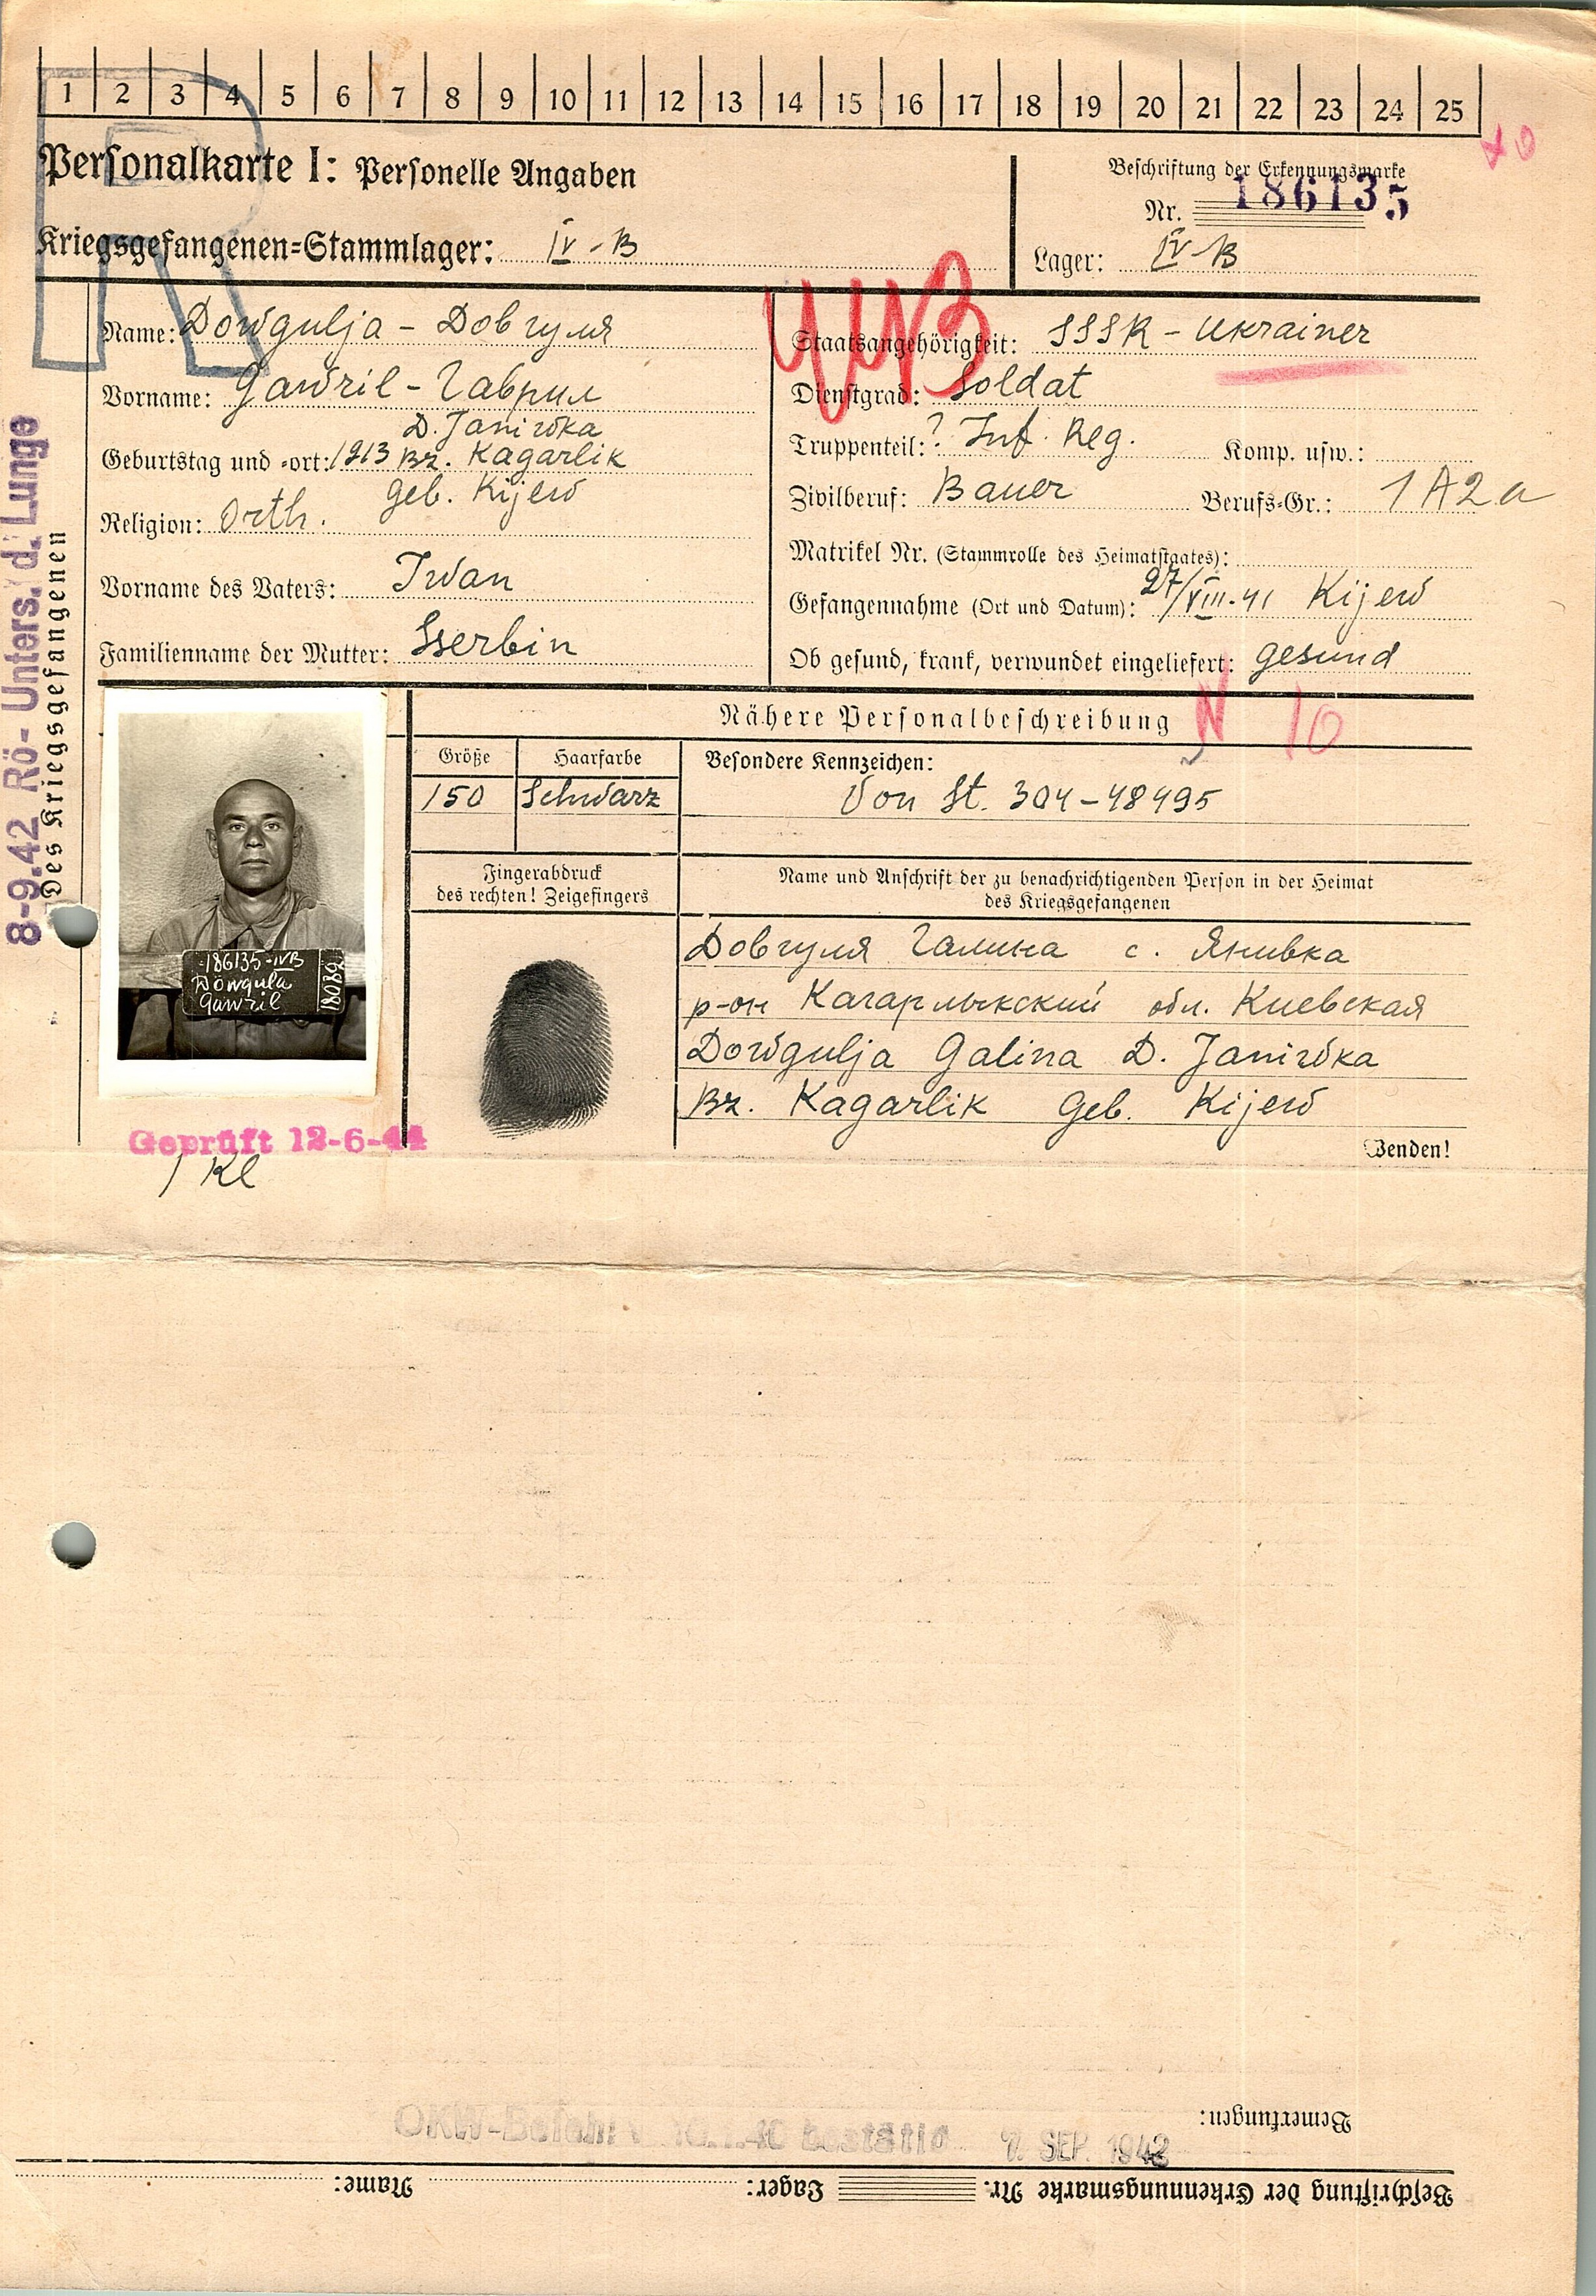 1 2 3 4 5 6 7 8 9 10 11 12 13 14 15 16 17 18 19 20 21 22 23 24 25
Personalkarte I: Personelle Angaben
Beschriftung der Erkennungsmarke
Nr. 186135
Kriegsgefangenen=Stammlager: IV-B
Lager: IV-B
Name: Dowgulja - Довгуля
Staatsangehörigkeit: SSSR - Ukrainer
Vorname: Gawril - Гаврил
Dienstgrad: Soldat
D. Janiwka
Truppenteil: ? Inf. Reg. Komp. usw.:
Geburtstag und =ort: 1913 Bz. Kagarlik
Geb. Kijew
Zivilberuf: Bauer Berufs=Gr.: 1 A 2 a
Religion: Orth.
Matrikel Nr. (Stammrolle des Heimatstaates):
Vorname des Vaters: Iwan
Gefangennahme (Ort und Datum): 27/VIII-41 Kijew
Familienname der Mutter: Sserbin
Ob gesund, krank, verwundet eingeliefert: gesund
8-9.42 Rö- Unters. d. Lunge
Des Kriegsgefangenen
Nähere Personalbeschreibung
N 10
Größe Haarfarbe Besondere Kennzeichen:
150 Schwarz Von St. 304-48495
Fingerabdruck
des rechten! Zeigefingers
Name und Anschrift der zu benachrichtigenden Person in der Heimat
des Kriegsgefangenen
Довгуля Галина с. Янивка
р-он Кагарлыкский обл. Киевская
Dowgulja Galina D. Janiwka
Bz. Kagarlik Geb. Kijew
186135-IVB
Dowgula
Gawril
18089
Wenden!
Geprüft 12-6-44
1 Kl
Bemerkungen:
OKW-Befehl v. 10.1.40 bestätig
7. SEP. 1942
Beschriftung der Erkennungsmarke Nr. Lager: Name: